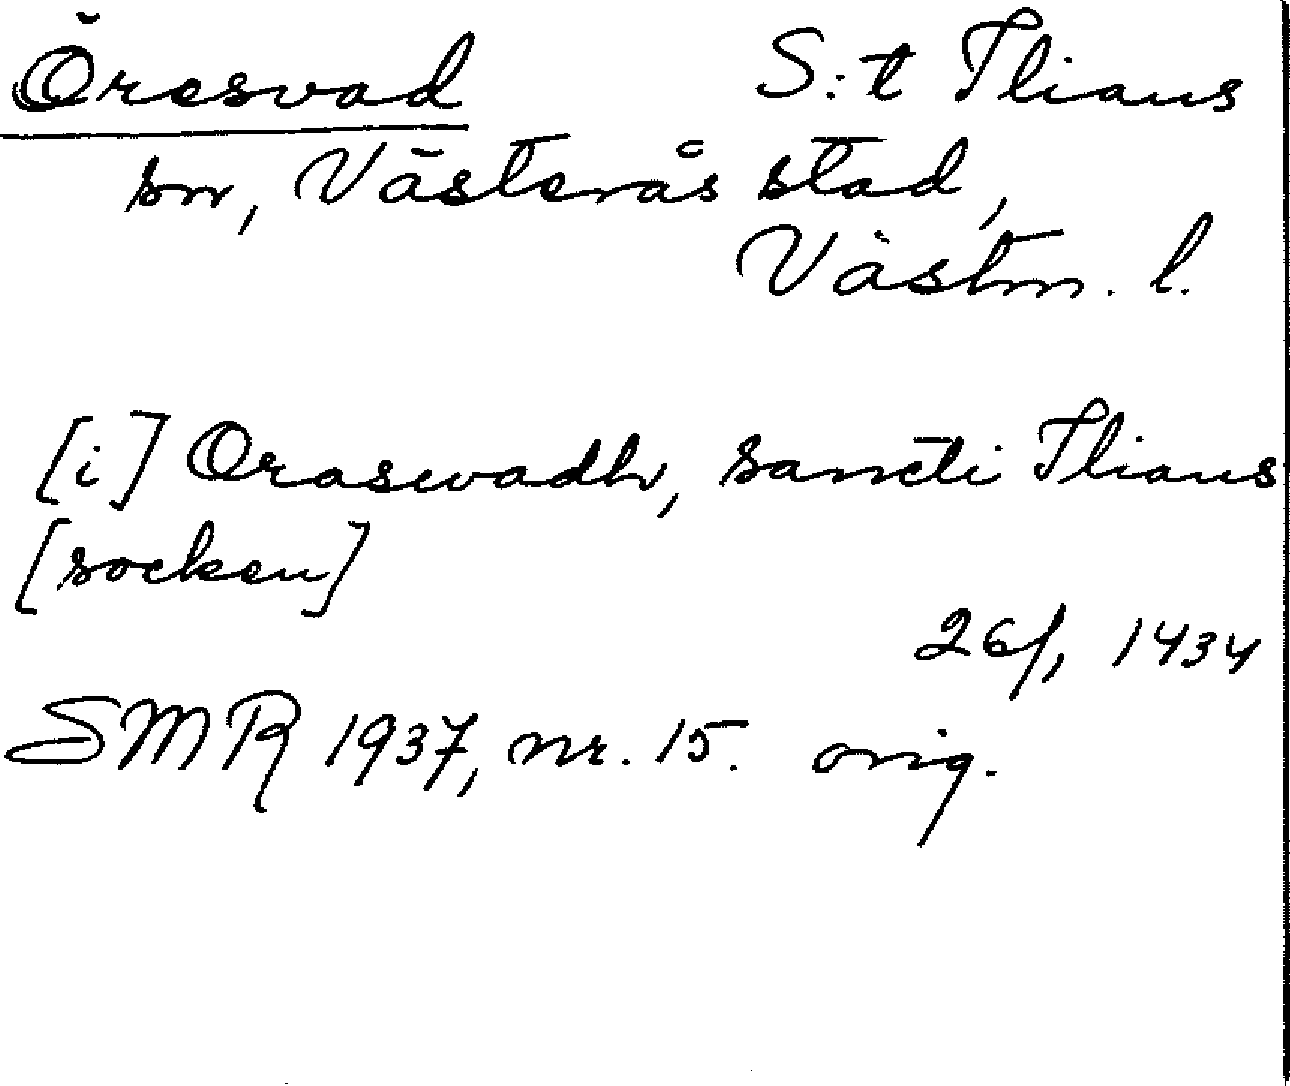 Öresvad S:t Ilians
sn, Västerås stad,
Västm. l.
[i] Oraswadh, sancti Ilians
[socken]
26/1, 1434
SMR 1937, nr. 15. orig.